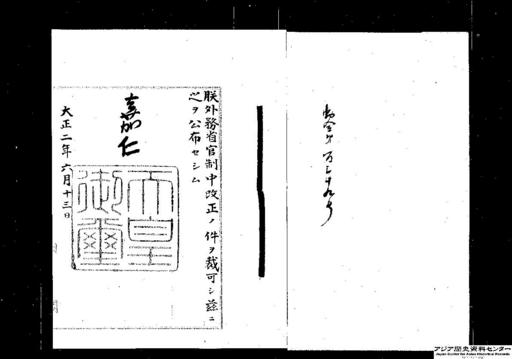 朕外務省官制中改正ノ件ヲ裁可シ茲ニ
之ヲ公布セシム
嘉仁
天皇御璽
大正二年六月十三日
アジア歴史資料センター
Japan Center for Asian Historical Records